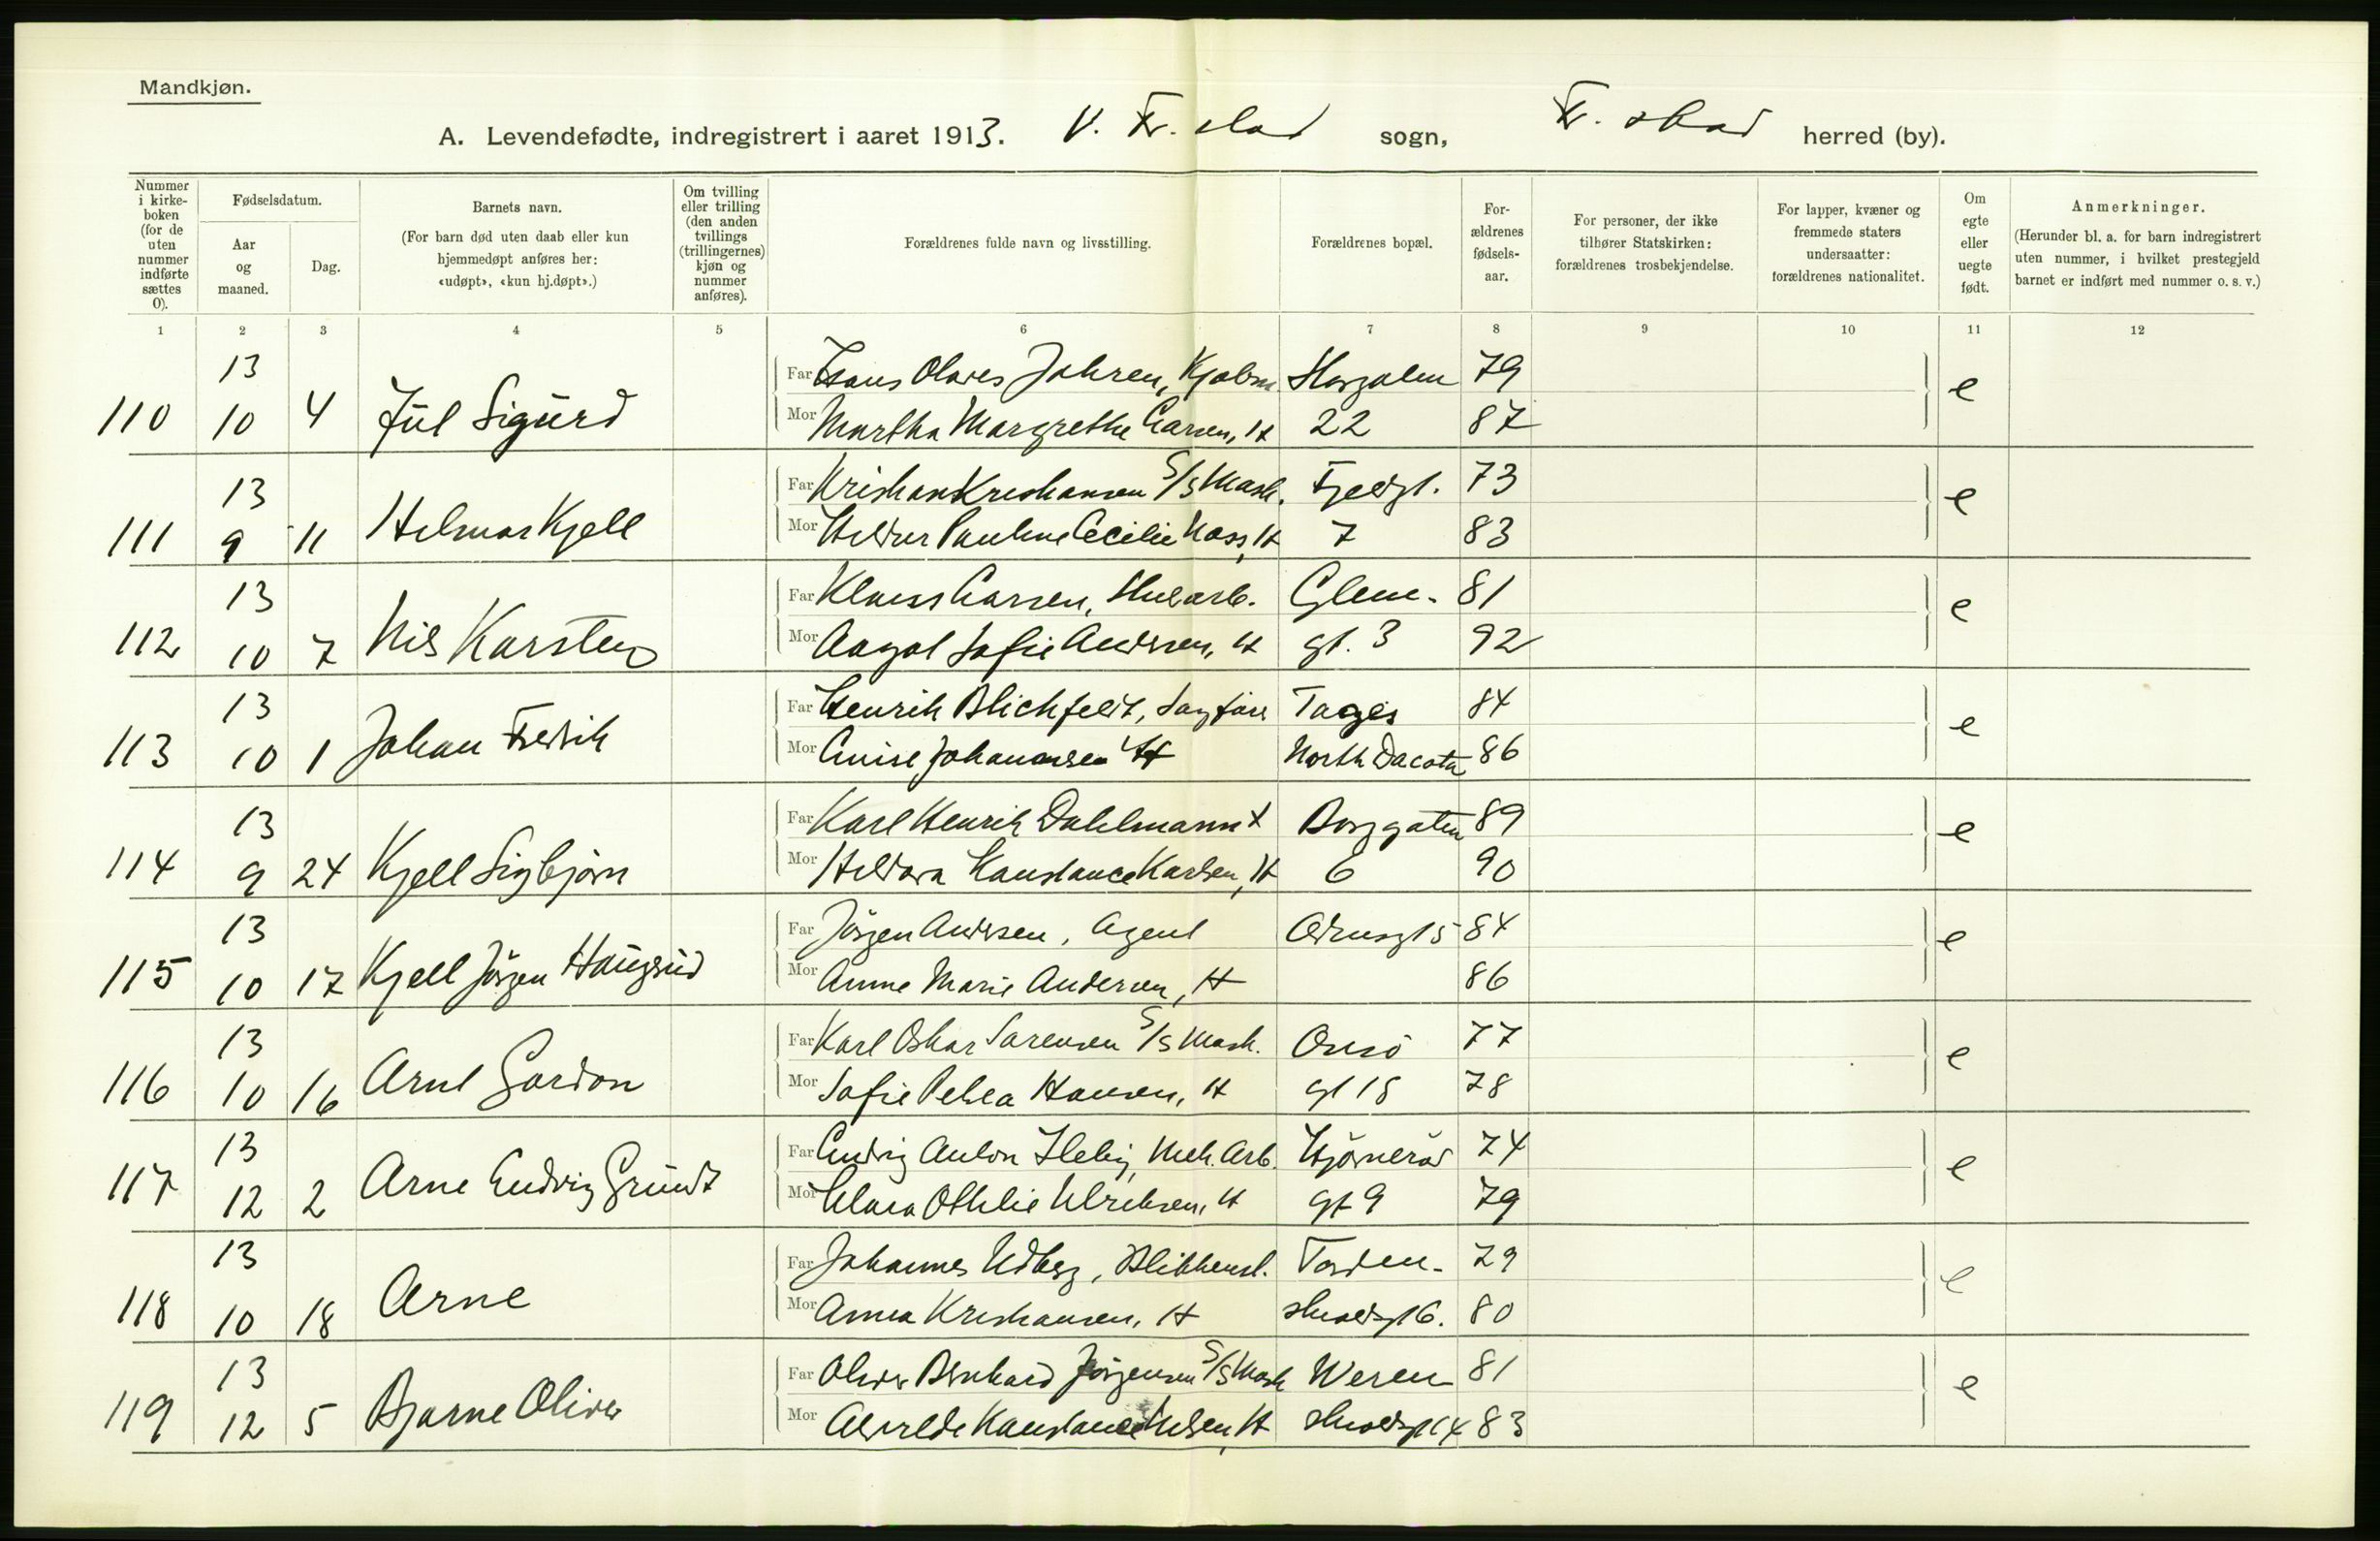 Mandkjøn.
A. Levendefødte, indregistrert i aaret 1913. V. Fr. stad sogn, Fr. stad herred (by).
Nummer i kirke-boken (for de uten nummer indførte sættes 0).
Fødselsdatum.
Aar og maaned.
Dag.
Barnets navn.
(For barn død uten daab eller kun hjemmedøpt anføres her: «udøpt», «kun hj.døpt».)
Om tvilling eller trilling (den anden tvillings (trillingernes) kjøn og nummer anføres).
Forældrenes fulde navn og livsstilling.
Forældrenes bopæl.
For-ældrenes fødsels-aar.
For personer, der ikke tilhører Statskirken: forældrenes trosbekjendelse.
For lapper, kvæner og fremmede staters undersaatter: forældrenes nationalitet.
Om egte eller uegte født.
Anmerkninger.
(Herunder bl. a. for barn indregistrert uten nummer, i hvilket prestegjeld barnet er indført med nummer o. s. v.)
1 2 3 4 5 6 7 8 9 10 11 12
13 Far Hans Olaves Johren, 79
110 10 4 Jul Sigurd Mor Martha Margrethe Larsen, H 22 87 e
13 Far Kristian Kristiansen S/S Mask. Fjeldgt. 73
111 9 11 Helmar Kjell Mor Pauline Cecilie Nass, H 7 83 e
13 Far Klaus Larsen, Glem- 81
112 10 7 Nils Karsten Mor Aagot Sofie Andersen, H gt. 3 92 e
13 Far Henrik Blichfeldt, Sagfører 84
113 10 1 Johan Fredrik Mor Johannessen H North Dacota 86 e
13 Far Karl Henrik Dahlmann Borggaten 89
114 9 24 Kjell Sigbjørn Mor Konstance Karlsen, H 6 90 e
13 Far Jörgen Andersen, Agent 84
115 10 17 Kjell Jörgen Haugsrud Mor Anne Marie Andersen, H 86 e
13 Far Karl Oskar Sorensen S/S Mask. Onsö 77
116 10 16 Arne Gordon Mor Sofie Petrea Hansen, H gt 18 78 e
13 Far Ludvig Anton Mek. Arb. 74
117 12 2 Arne Ludvig Grundt Mor Klara Othilie Ulriksen, H gt 9 79 e
13 Far Johannes Udberg, Blikkensl. Torden- 79
118 10 18 Arne Mor Anna Kristiansen, H skioldsgt 6. 80 e
13 Far Oliver Bernhard Jörgensen S/S Mask Weren 81
119 12 5 Bjarne Oliver Mor Konstance Nilsen, H skioldsgt 14 83 e